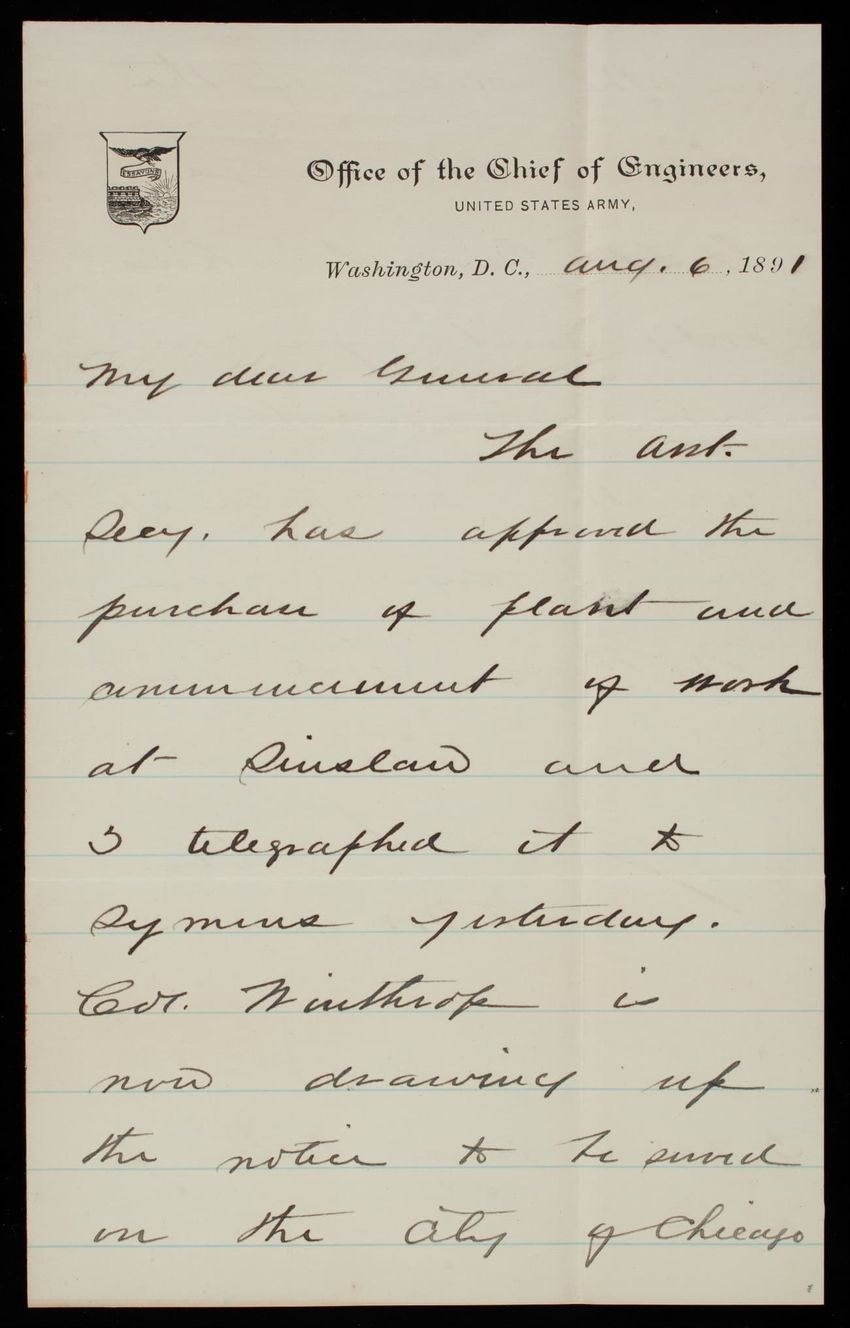 ESSAYONS
Office of the Chief of Engineers,
UNITED STATES ARMY,
Washington, D. C., Aug. 6, 1891
My dear General
The Asst.
Secy. has approved the
purchase of plant and
commencement of work
at Siuslaw and
I telegraphed it to
Symons yesterday.
Col. Winthrop is
now drawing up
the notice to be served
on the City of Chicago